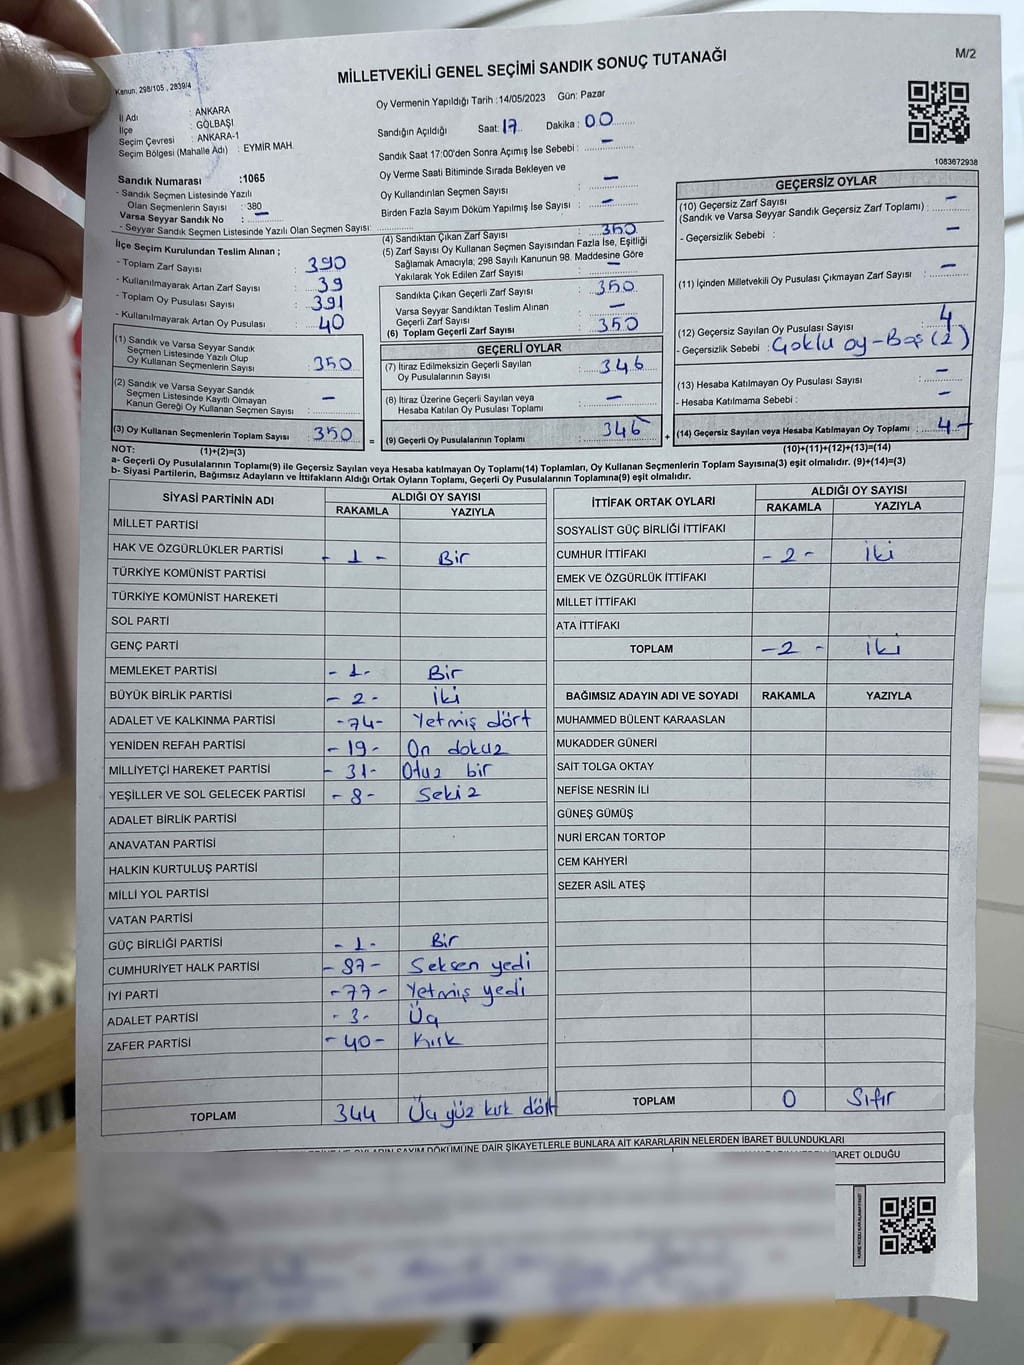 M/2
MİLLETVEKİLİ GENEL SEÇİMİ SANDIK SONUÇ TUTANAĞI
Kanun, 298/105 , 2839/4
İl Adı : ANKARA
İlçe : GÖLBAŞI
Seçim Çevresi : ANKARA-1
Seçim Bölgesi (Mahalle Adı) : EYMİR MAH.
Sandık Numarası :1065
- Sandık Seçmen Listesinde Yazılı
Olan Seçmenlerin Sayısı : 380
Varsa Seyyar Sandık No : -
- Seyyar Sandık Seçmen Listesinde Yazılı Olan Seçmen Sayısı:
İlçe Seçim Kurulundan Teslim Alınan ;
- Toplam Zarf Sayısı : 390
- Kullanılmayarak Artan Zarf Sayısı : 39
- Toplam Oy Pusulası Sayısı : 391
- Kullanılmayarak Artan Oy Pusulası : 40
(1) Sandık ve Varsa Seyyar Sandık
Seçmen Listesinde Yazılı Olup
Oy Kullanan Seçmenlerin Sayısı : 350
(2) Sandık ve Varsa Seyyar Sandık
Seçmen Listesinde Kayıtlı Olmayan
Kanun Gereği Oy Kullanan Seçmen Sayısı : -
(3) Oy Kullanan Seçmenlerin Toplam Sayısı : 350 =
Oy Vermenin Yapıldığı Tarih :14/05/2023 Gün: Pazar
Sandığın Açıldığı Saat: 17 Dakika : 00
Sandık Saat 17:00'den Sonra Açımış İse Sebebi : -
Oy Verme Saati Bitiminde Sırada Bekleyen ve
Oy Kullandırılan Seçmen Sayısı : -
Birden Fazla Sayım Döküm Yapılmış İse Sayısı : -
(4) Sandıktan Çıkan Zarf Sayısı : 350
(5) Zarf Sayısı Oy Kullanan Seçmen Sayısından Fazla İse, Eşitliği
Sağlamak Amacıyla; 298 Sayılı Kanunun 98. Maddesine Göre
Yakılarak Yok Edilen Zarf Sayısı : -
Sandıkta Çıkan Geçerli Zarf Sayısı : 350
Varsa Seyyar Sandıktan Teslim Alınan
Geçerli Zarf Sayısı : -
(6) Toplam Geçerli Zarf Sayısı : 350
GEÇERLİ OYLAR
(7) İtiraz Edilmeksizin Geçerli Sayılan
Oy Pusulalarının Sayısı : 346
(8) İtiraz Üzerine Geçerli Sayılan veya
Hesaba Katılan Oy Pusulası Toplamı : -
(9) Geçerli Oy Pusulalarının Toplamı : 346 +
1083672938
GEÇERSİZ OYLAR
(10) Geçersiz Zarf Sayısı : -
(Sandık ve Varsa Seyyar Sandık Geçersiz Zarf Toplamı)
- Geçersizlik Sebebi : -
(11) İçinden Milletvekili Oy Pusulası Çıkmayan Zarf Sayısı : -
(12) Geçersiz Sayılan Oy Pusulası Sayısı : 4
- Geçersizlik Sebebi : Çoklu oy-Boş (2)
(13) Hesaba Katılmayan Oy Pusulası Sayısı : -
- Hesaba Katılmama Sebebi : -
(14) Geçersiz Sayılan veya Hesaba Katılmayan Oy Toplamı : 4-
NOT: (1)+(2)=(3) (10)+(11)+(12)+(13)=(14)
a- Geçerli Oy Pusulalarının Toplamı(9) ile Geçersiz Sayılan veya Hesaba katılmayan Oy Toplamı(14) Toplamları, Oy Kullanan Seçmenlerin Toplam Sayısına(3) eşit olmalıdır. (9)+(14)=(3)
b- Siyasi Partilerin, Bağımsız Adayların ve İttifakların Aldığı Ortak Oyların Toplamı, Geçerli Oy Pusulalarının Toplamına(9) eşit olmalıdır.
SİYASİ PARTİNİN ADI ALDIĞI OY SAYISI
RAKAMLA YAZIYLA
MİLLET PARTİSİ
HAK VE ÖZGÜRLÜKLER PARTİSİ - 1 - Bir
TÜRKİYE KOMÜNİST PARTİSİ
TÜRKİYE KOMÜNİST HAREKETİ
SOL PARTİ
GENÇ PARTİ
MEMLEKET PARTİSİ - 1 - Bir
BÜYÜK BİRLİK PARTİSİ - 2 - iki
ADALET VE KALKINMA PARTİSİ -74- Yetmiş dört
YENİDEN REFAH PARTİSİ - 19 - On dokuz
MİLLİYETÇİ HAREKET PARTİSİ - 31- Otuz bir
YEŞİLLER VE SOL GELECEK PARTİSİ - 8 - Sekiz
ADALET BİRLİK PARTİSİ
ANAVATAN PARTİSİ
HALKIN KURTULUŞ PARTİSİ
MİLLİ YOL PARTİSİ
VATAN PARTİSİ
GÜÇ BİRLİĞİ PARTİSİ - 1 - Bir
CUMHURİYET HALK PARTİSİ - 87 - Seksen yedi
İYİ PARTİ -77 - Yetmiş yedi
ADALET PARTİSİ - 3 - Üç
ZAFER PARTİSİ - 40 - Kırk
TOPLAM 344 Üç yüz kırk dört
İTTİFAK ORTAK OYLARI ALDIĞI OY SAYISI
RAKAMLA YAZIYLA
SOSYALİST GÜÇ BİRLİĞİ İTTİFAKI
CUMHUR İTTİFAKI - 2 - iki
EMEK VE ÖZGÜRLÜK İTTİFAKI
MİLLET İTTİFAKI
ATA İTTİFAKI
TOPLAM - 2 - iki
BAĞIMSIZ ADAYIN ADI VE SOYADI RAKAMLA YAZIYLA
MUHAMMED BÜLENT KARAASLAN
MUKADDER GÜNERİ
SAİT TOLGA OKTAY
NEFİSE NESRİN İLİ
GÜNEŞ GÜMÜŞ
NURİ ERCAN TORTOP
CEM KAHYERİ
SEZER ASİL ATEŞ
TOPLAM 0 Sıfır
SAYIM DÖKÜMÜNE DAİR ŞİKAYETLERLE BUNLARA AİT KARARLARIN NELERDEN İBARET BULUNDUKLARI
İBARET OLDUĞU